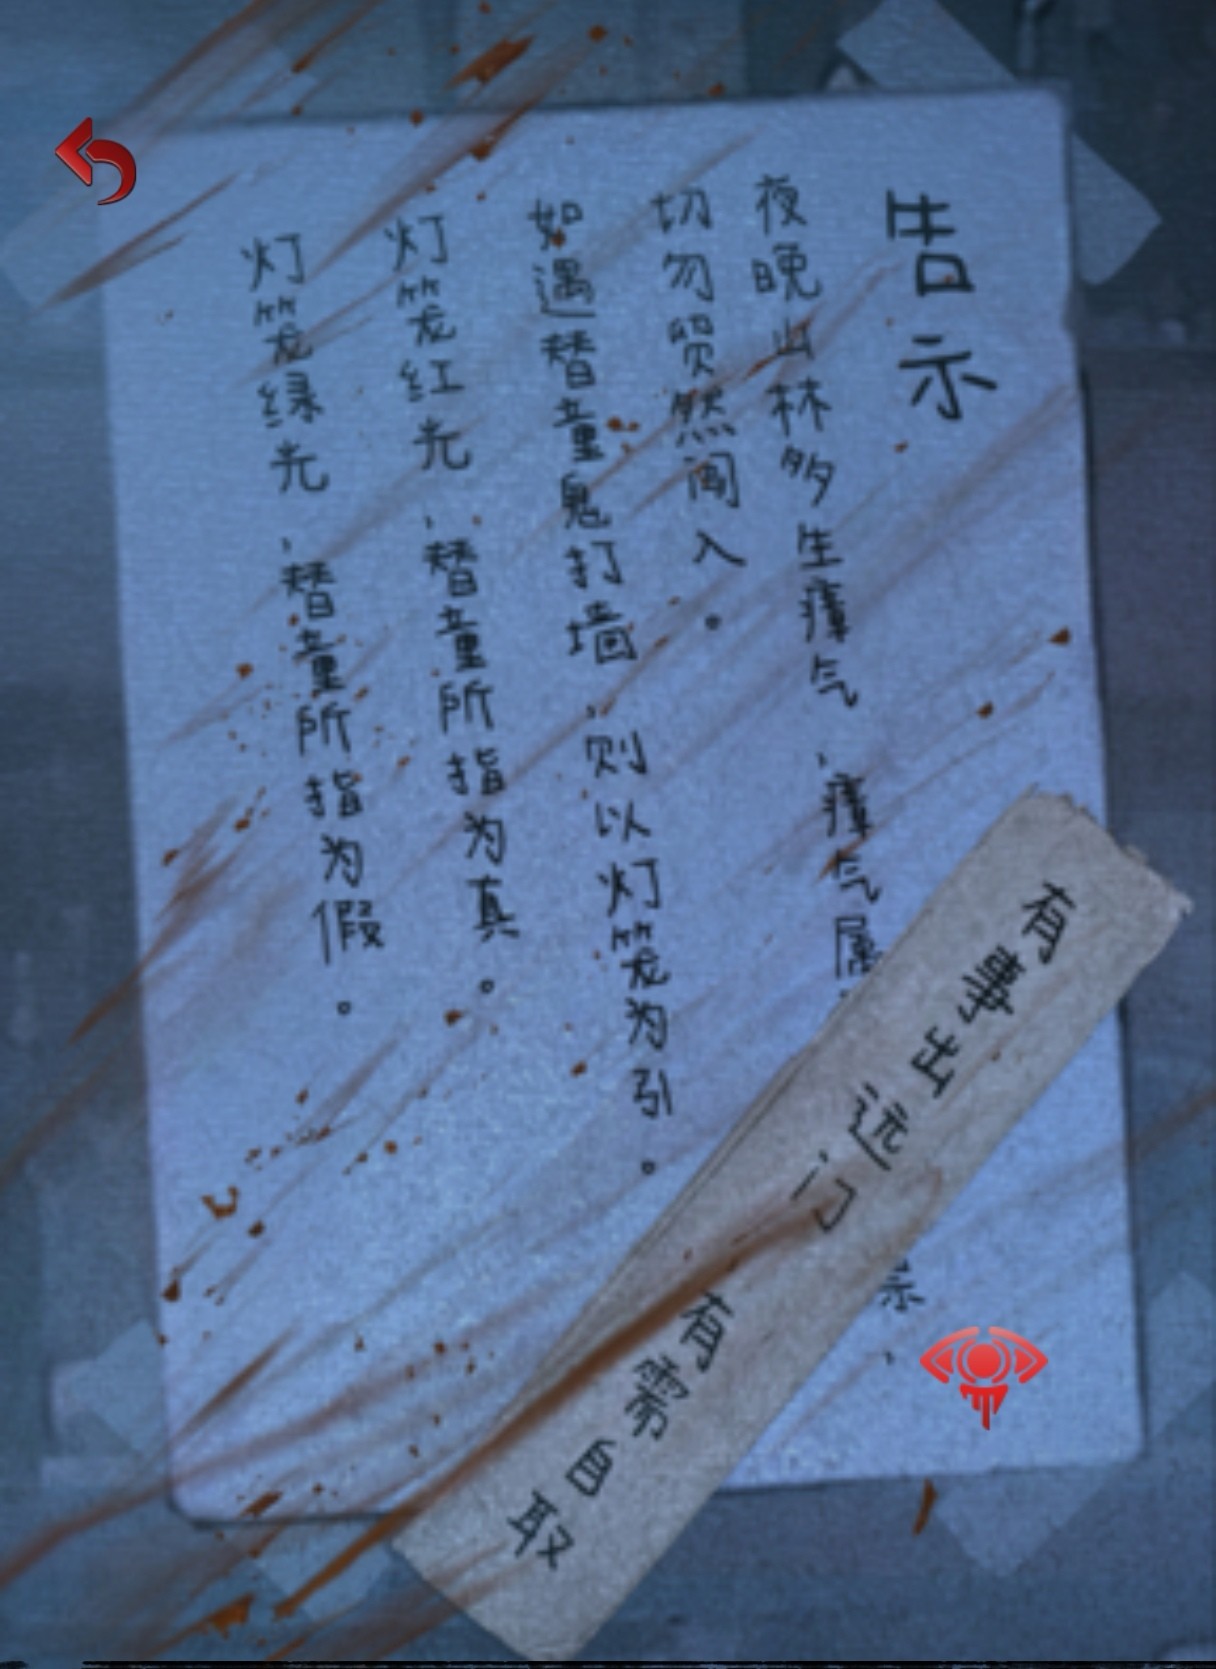 告示
夜晚山林多生瘴气,瘴气属
切勿贸然闯入。
如遇替童鬼打墙,则以灯笼为引。
灯笼红光,替童所指为真。
灯笼绿光,替童所指为假。
有事出远门 有需自取